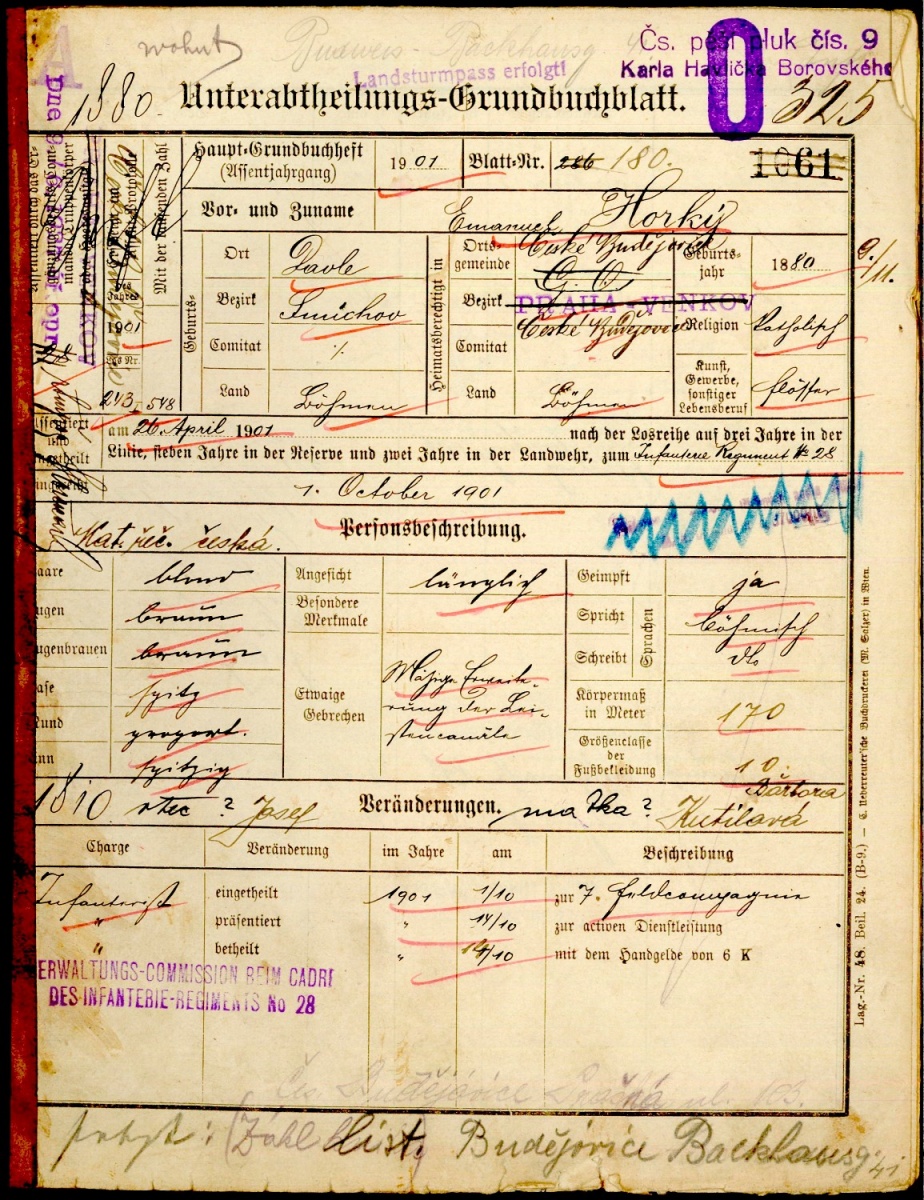 wohnt Budweis - Backhausg. 41
Landsturmpass erfolgt!
Čs. pěší pluk čís. 9
Karla Havlíčka Borovského
0
1880.
Unterabtheilungs-Grundbuchblatt.
325
Haupt-Grundbuchheft
(Assentjahrgang)
1901
Blatt-Nr. 286 180.
1061
Vor- und Zuname
Emanuel Horký
Geburts-
Ort Davle
Bezirk Smichov
Comitat ·/.
Land Böhmen
Heimatsberechtigt in
Orts-
gemeinde České Budějovice
Bezirk PRAHA-VENKOV
Comitat České Budějovice
Land Böhmen
Geburts-
jahr 1880
9./11.
Religion Katholisch
Kunst,
Gewerbe,
sonstiger
Lebensberuf
flösser
Mit der laufenden Zahl
des
Jahres
1901
Los Nr.
213 I 548
am 26. April 1901 nach der Losreihe auf drei Jahre in der
Linie, sieben Jahre in der Reserve und zwei Jahre in der Landwehr, zum Infanterie Regiment № 28
1. October 1901
Personsbeschreibung.
Mat. řeč. česká.
aare blond
ugen braun
ugenbrauen braun
ase spitz
und proport.
nn spitzig
Angesicht länglich
Besondere
Merkmale
Etwaige
Gebrechen
Mäßige Erweite-
rung der Lei-
stencanäle
Geimpft ja
Spricht böhmisch
Schreibt dto
Sprachen
Körpermaß
in Meter 170
Größenclasse
der
Fußbekleidung
10.
1810 otec? Josef
Veränderungen.
matka? Barbora
Kutilová
Charge Veränderung im Jahre am Beschreibung
Infanterist eingetheilt 1901 1/10 zur 7. Feldcompagnie
" präsentiert " 14/10 zur activen Dienstleistung
" betheilt " 14/10 mit dem Handgelde von 6 K
ERWALTUNGS-COMMISSION BEIM CADRE
DES INFANTERIE-REGIMENTS No 28
Čes. Budějovice Pražská ul. 103.
jetzt: (Zähl List) Budějovice Backhausg. 41
Lag.-Nr. 48. Beil. 24. (B-9.) — C. Ueberreuter'sche Buchdruckerei (M. Salzer) in Wien.